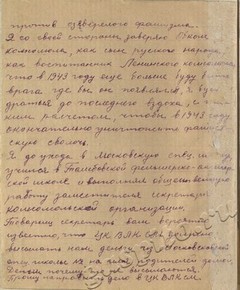 против озверелого фашизма.
Я со своей стороны заверяю Обком
комсомола, как сын русского народа,
как воспитанник Ленинского комсомола
что в 1943 году еще больше буду бить
врага где бы он не появлялся, я буду
драться до последнего вздоха, с
расчетом, чтобы в 1943 году
окончательно уничтожить фашист
скую сволочь.
Я до ухода в Московскую спец.
учился в Тамбовской фельдшерско-акушер
ской школе и выполнял общественную
работу заместителя секретаря
комсомольской организации.
Товарищ секретарь вам вероятно
известно, что ЦК ВЛКСМ
высылать нам деньги
спец школы на родителей
Деньги почему-то не высылаются.
дело в ЦК ВЛКСМ